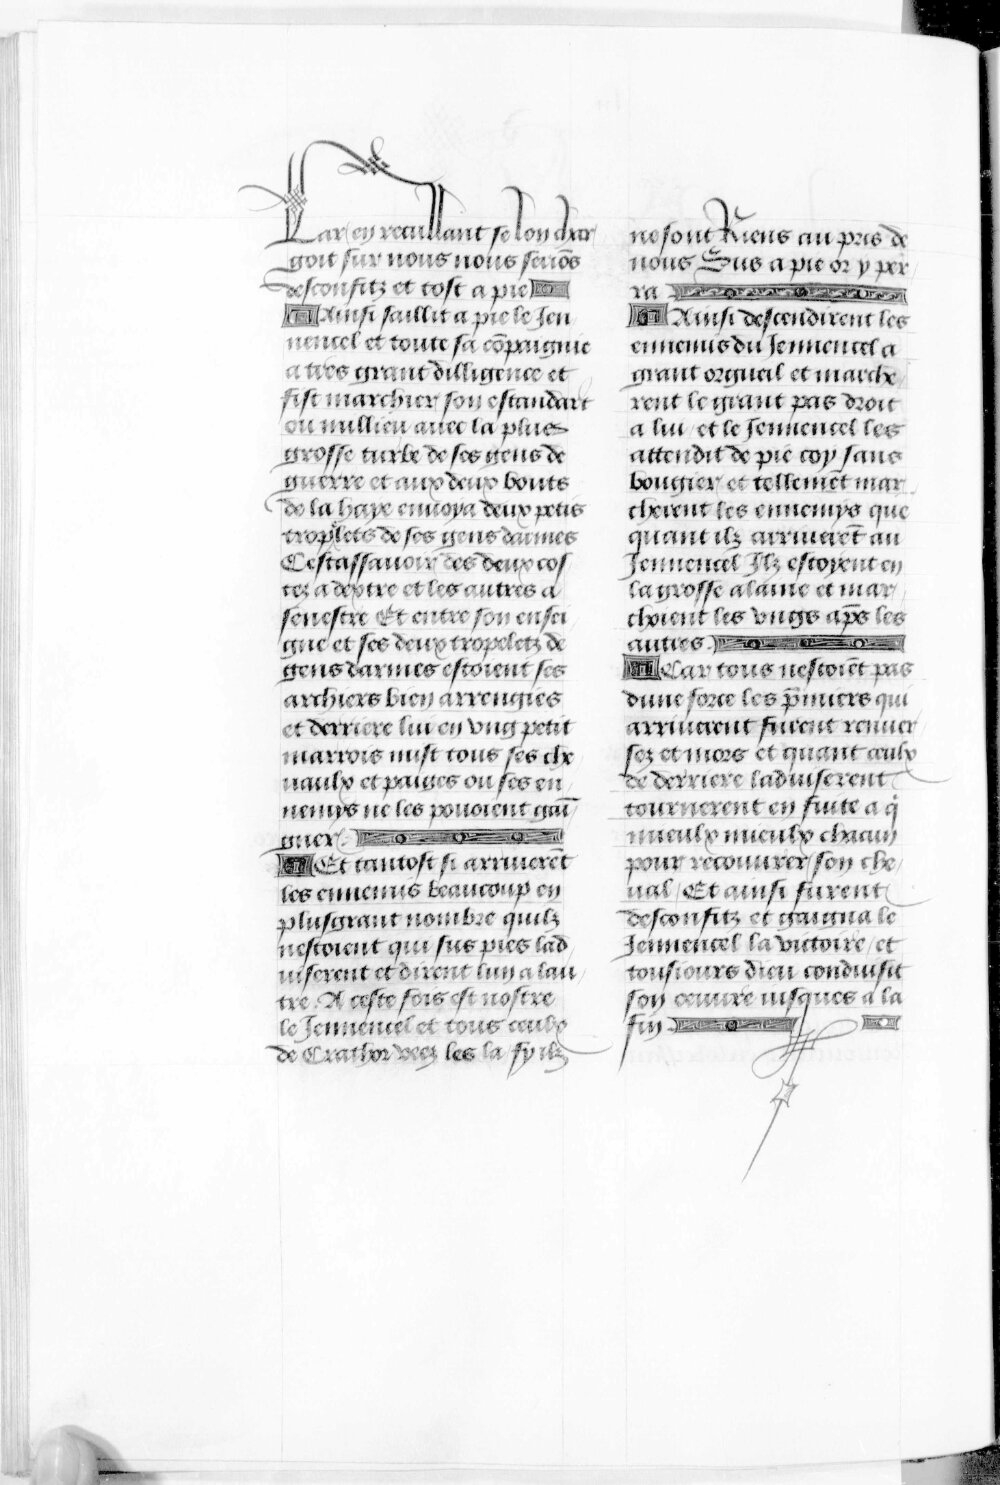 Car en recullant se lon char
goit sur nous nous seriõs
desconfitz et tost a pie
Ainsi saillit a pie le Jen
nencel et toute sa cõpaignie
a tres grant dilligence et
fist marchier son estandart
ou millieu avec la plus
grosse turbe de ses gens de
guerre et aux deux bouts
de la haye envoya deux petis
tropletz de ses gens darmes
Cestassavoir des deux cos
tez a dextre et les autres a
senestre Et entre son ensei
gne et ses deux tropeletz de
gens darmes estoient ses
archiers bien arrengies
et derriere lui en vng petit
marrois mist tous ses che
uaulx et paiges ou ses en
nemys ne les pouoient gai
gner
Et tantost si arriverẽt
les ennemis beaucoup en
plusgrant nombre quilz
nestoient qui sus pies lad
viserent et dirent lun a lau
tre A ceste fois est nostre
le Jennencel et tous ceulx
de Crathor veez les la fy ilz
ne sont Riens au pris de
nous Sus a pie or y per
ra
Ainsi descendirent les
ennemis du Jennencel a
grant orgueil et marche
rent le grant pas droit
a lui / et le Jennencel les
attendit de pie coy sans
bougier / et tellemẽt mar
cherent les ennemys que
quant ilz arriverẽt au
Jennencel Ilz estoyent en
la grosse alaine et mar
choient les vngs ap̃s les
autres
Car tous nestoiẽt pas
dune force les p̃miers qui
arriverent furent renver
sez et mors et quant ceulx
de derriere ladviserent
tournerent en fuite a q
mieulx mieulx chacun
pour recouvrer son che
ual / Et ainsi furent
desconfitz et gaigna le
Jennencel la victoire / et
tousiours dieu conduisit
son oeuvre iusques a la
fin